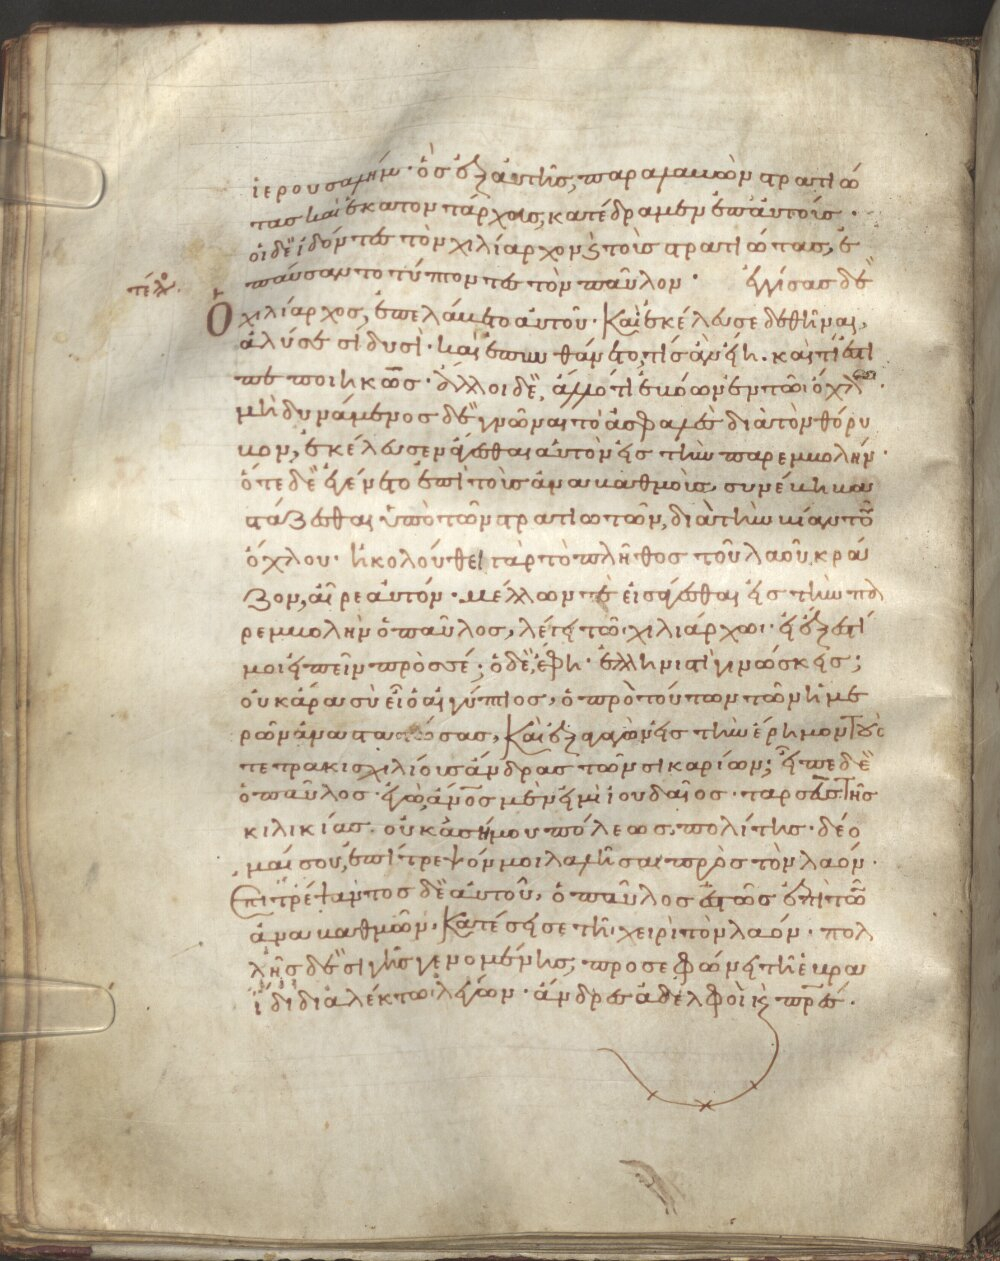 ἱερουσαλήμ· ὃς ἐξαυτῆς, παραλαβὼν στρατιώ
τας καὶ ἑκατοντάρχους, κατέδραμεν ἐπ αὐτούς·
οἱ δὲ ἰδόντες τὸν χιλίαρχον ϗ τοὺς στρατιώτας, ἐ
παύσαντο τύπτοντες τὸν παῦλον· ἐγγίσας δὲ
τέλ
ὁ χιλίαρχος, ἐπελάβετο αὐτοῦ· Καὶ ἐκέλευσε δεθῆναι,
ἁλύσεσι δυσὶ· καὶ ἐπυνθάνετο, τίς ἂν εἴη· καὶ τί ἐστι
πεποιηκώς· ἄλλοι δὲ, ἄλλο τι ἐβόων ἐν τῶ ὄχλω·
μὴ δυνάμενος δὲ γνῶναι τὸ ἀσφαλὲς διὰ τὸν θόρυ
βον, ἐκέλευσεν ἄγεσθαι αὐτὸν εἰς τὴν παρεμβολήν·
ὅτε δὲ ἐγένετο ἐπὶ τοὺς ἀναβαθμοὺς, συνέβη βα
στάζεσθαι ὑπὸ τῶν στρατιωτῶν, διὰ τὴν βίαν τοῦ
ὄχλου· ἠκολούθει γὰρ τὸ πλῆθος τοῦ λαοῦ κρά
ζον, αἶρε αὐτόν· μέλλων τε εἰσάγεσθαι εἰς τὴν πα
ρεμβολὴν ὁ παῦλος, λέγει τῶ χιλιάρχω· εἰ ἔξεστί
μοι εἰπεῖν πρὸς σέ; ὁ δὲ, ἔφη· ἑλληνιστὶ γινώσκεις;
οὐκ ἄρα σὺ εἶ ὁ αἰγύπτιος, ὁ πρὸ τούτων τῶν ἡμε
ρῶν ἀναστατώσας, Καὶ ἐξαγαγὼν εἰς τὴν ἔρημον τοὺς
τετρακισχιλίους ἄνδρας τῶν σικαρίων; εἶπε δὲ
ὁ παῦλος· ἐγὼ ἄνος μέν εἰμι ἰουδαῖος· ταρσεὺς τῆς
κιλικίας· οὐκ ἀσήμου πόλεως πολίτης· δέο
μαί σου, ἐπίτρεψόν μοι λαλῆσαι πρὸς τὸν λαόν·
Ἐπιτρέψαντος δὲ αὐτοῦ, ὁ παῦλος ἑστὼς ἐπὶ τῶν
ἀναβαθμῶν· Κατέσεισε τῆ χειρὶ τὸν λαόν· πολ
λῆς δὲ σιγῆς γενομένης, προσεφώνει τῆ ἑβρα
ΐδι διαλέκτω λέγων· ἄνδρες ἀδελφοὶ ϗ πρες·